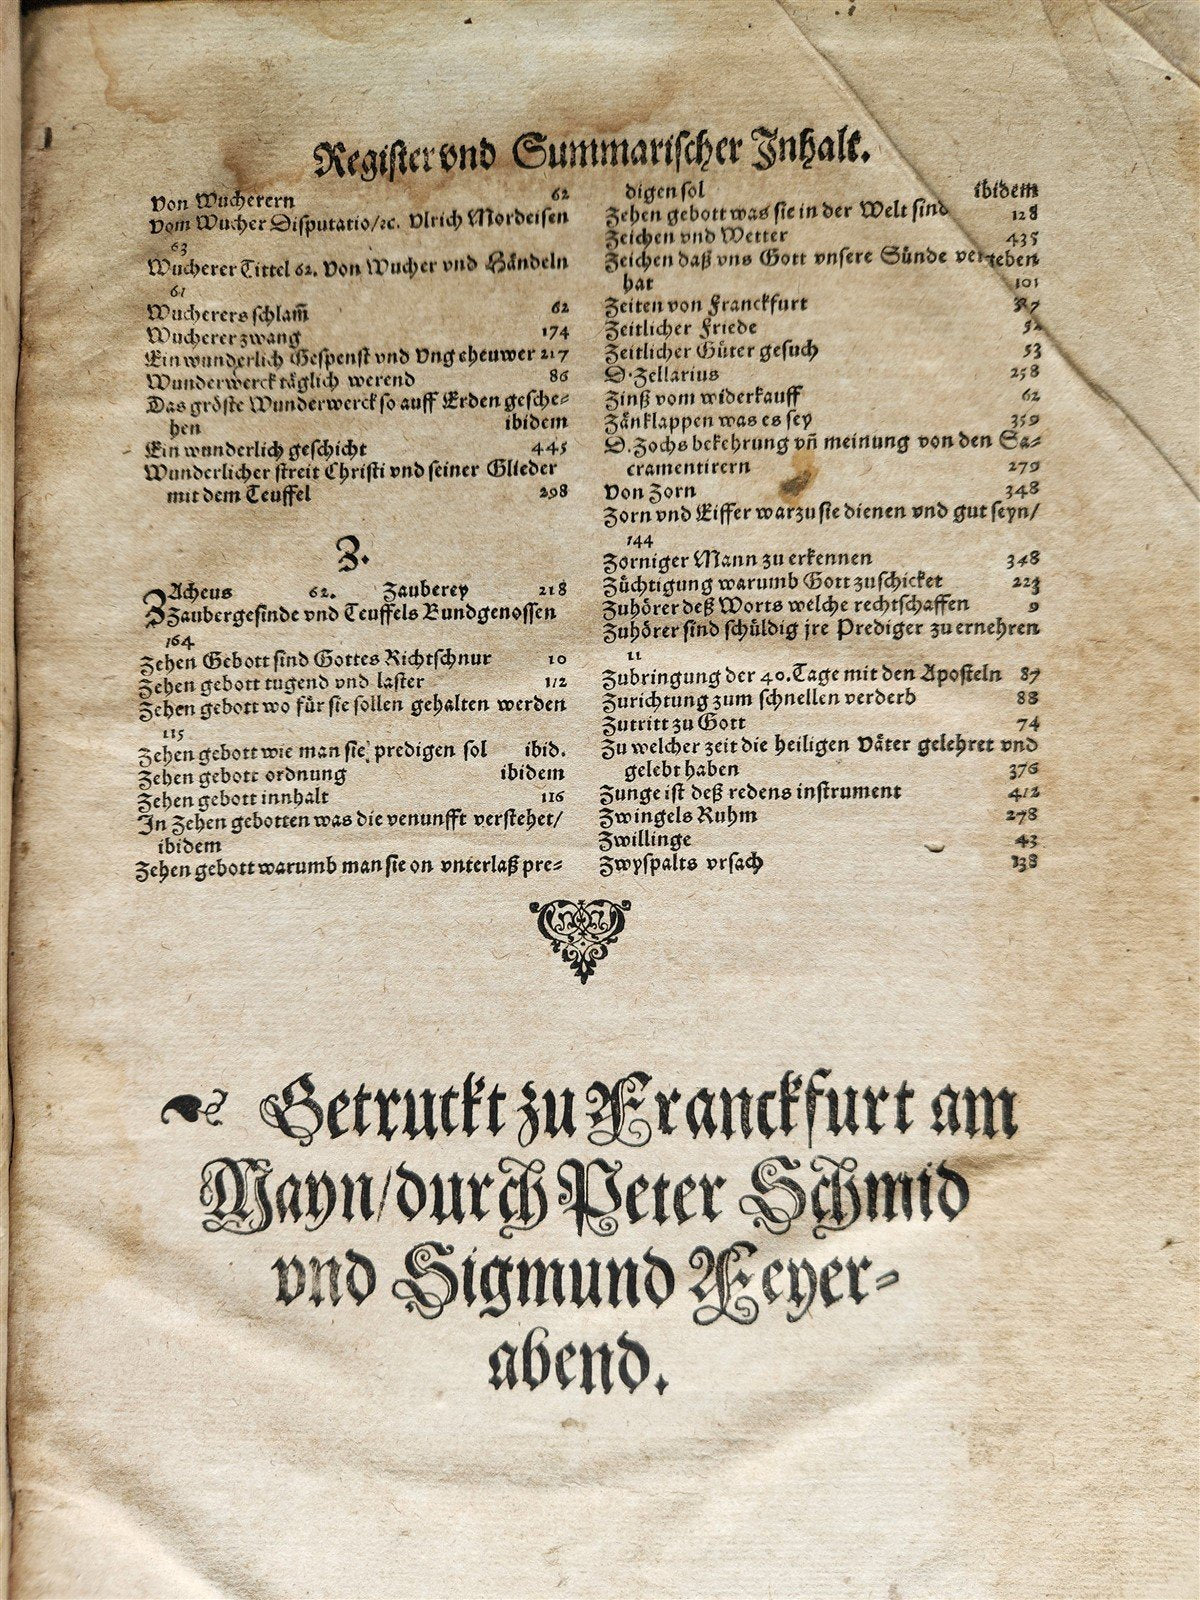 Register vnd Summarischer Inhalt.
Von Wucherern 62
Vom Wucher Disputatio/ꝛc. Vlrich Mordeisen
63
Wucherer Tittel 62. Von Wucher vnd Händeln
61
Wucherers schlam̃ 62
Wucherer zwang 174
Ein wunderlich Gespenst vnd Vngeheuwer 217
Wunderwerck täglich werend 86
Das gröste Wunderwerck so auff Erden gesche-
hen ibidem
Ein wunderlich geschicht 445
Wunderlicher streit Christi vnd seiner Glieder
mit dem Teuffel 298
Z.
ZAcheus 62. Zauberey 218
Zaubergesinde vnd Teuffels Bundgenossen
164
Zehen Gebott sind Gottes Richtschnur 10
Zehen gebott tugend vnd laster 112
Zehen gebott wo für sie sollen gehalten werden
115
Zehen gebott wie man sie predigen sol ibid.
Zehen gebott ordnung ibidem
Zehen gebott innhalt 116
In Zehen gebotten was die venunfft verstehet/
ibidem
Zehen gebott warumb man sie on vnterlaß pre-
digen sol ibidem
Zehen gebott was sie in der Welt sind 128
Zeichen vnd Wetter 435
Zeichen daß vns Gott vnsere Sünde vergeben
hat 101
Zeiten von Franckfurt 387
Zeitlicher Friede 52
Zeitlicher Güter gesuch 53
D. Zellarius 258
Zinß vom widerkauff 62
Zänklappen was es sey 359
D. Zochs bekehrung vñ meinung von den Sa-
cramentirern 279
Von Zorn 348
Zorn vnd Eiffer warzu sie dienen vnd gut seyn/
144
Zorniger Mann zu erkennen 348
Züchtigung warumb Gott zuschicket 223
Zuhörer deß Worts welche rechtschaffen 9
Zuhörer sind schüldig jre Prediger zu ernehren
11
Zubringung der 40. Tage mit den Aposteln 87
Zurichtung zum schnellen verderb 88
Zutritt zu Gott 74
Zu welcher zeit die heiligen Väter gelehret vnd
gelebt haben 376
Zunge ist deß redens instrument 412
Zwingels Ruhm 278
Zwillinge 43
Zwyspalts vrsach 138
Getruckt zu Franckfurt am
Mayn/durch Peter Schmid
vnd Sigmund Feyer-
abend.